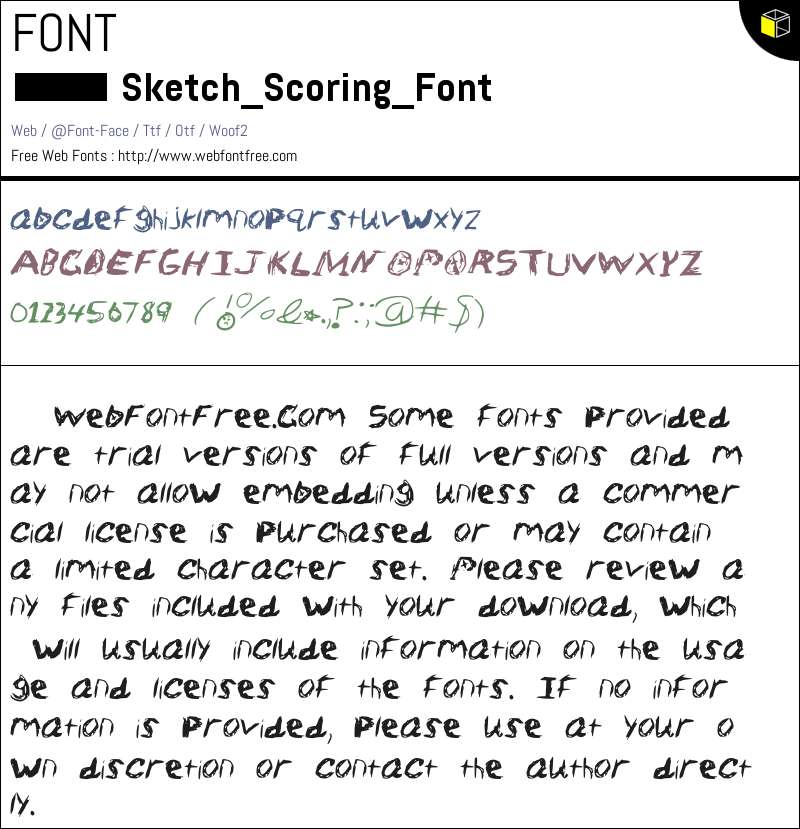 FONT
Sketch_Scoring_Font
Web / @Font-Face / Ttf / Otf / Woof2
Free Web Fonts : http://www.webfontfree.com
abcdefghijklmnopqrstuvwxyz
ABCDEFGHIJKLMNOPQRSTUVWXYZ
0123456789 (!@%&*.,?:;@#$)
WebFontFree.Com Some fonts provided
are trial versions of full versions and m
ay not allow embedding unless a commer
cial license is purchased or may contain
a limited character set. Please review a
ny files included with your download, which
will usually include information on the usa
ge and licenses of the fonts. If no infor
mation is provided, please use at your o
wn discretion or contact the author direct
ly.